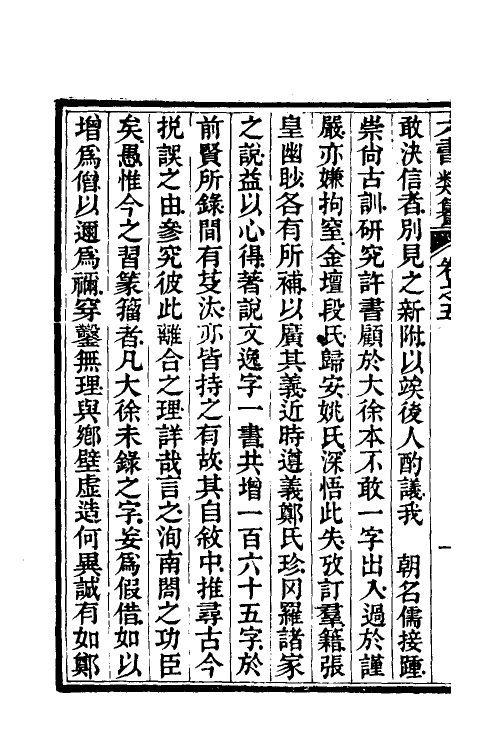 六書類纂 卷之五 一
敢決信者別見之新附以竢後人酌議我 朝名儒接踵
崇尙古訓研究許書顧於大徐本不敢一字出入過於謹
嚴亦嫌拘窒金壇段氏歸安姚氏深悟此失攷訂羣籍張
皇幽眇各有所補以廣其義近時遵義鄭氏珍冈羅諸家
之說益以心得著說文逸字一書共增一百六十五字於
前賢所錄間有芟汰亦皆持之有故其自敘中推尋古今
挩誤之由參究彼此離合之理詳哉言之洵南閣之功臣
矣愚惟今之習篆籀者凡大徐未錄之字妄爲假借如以
增爲僧以邇爲禰穿鑿無理與鄉壁虛造何異誠有如鄭